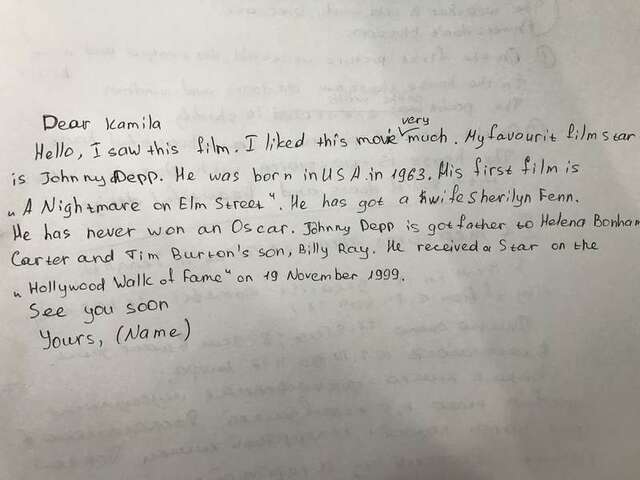 Dear Kamila
Hello, I saw this film. I liked this movie very much. My favourit film star
is Johnny Depp. He was born in USA in 1963. His first film is
"A Nightmare on Elm Street". He has got a wife Sherilyn Fenn.
He has never won an Oscar. Johnny Depp is gotfather to Helena Bonham
Carter and Tim Burton's son, Billy Ray. He received a Star on the
"Hollywood Walk of Fame" on 19 November 1999.
See you soon
Yours, (Name)